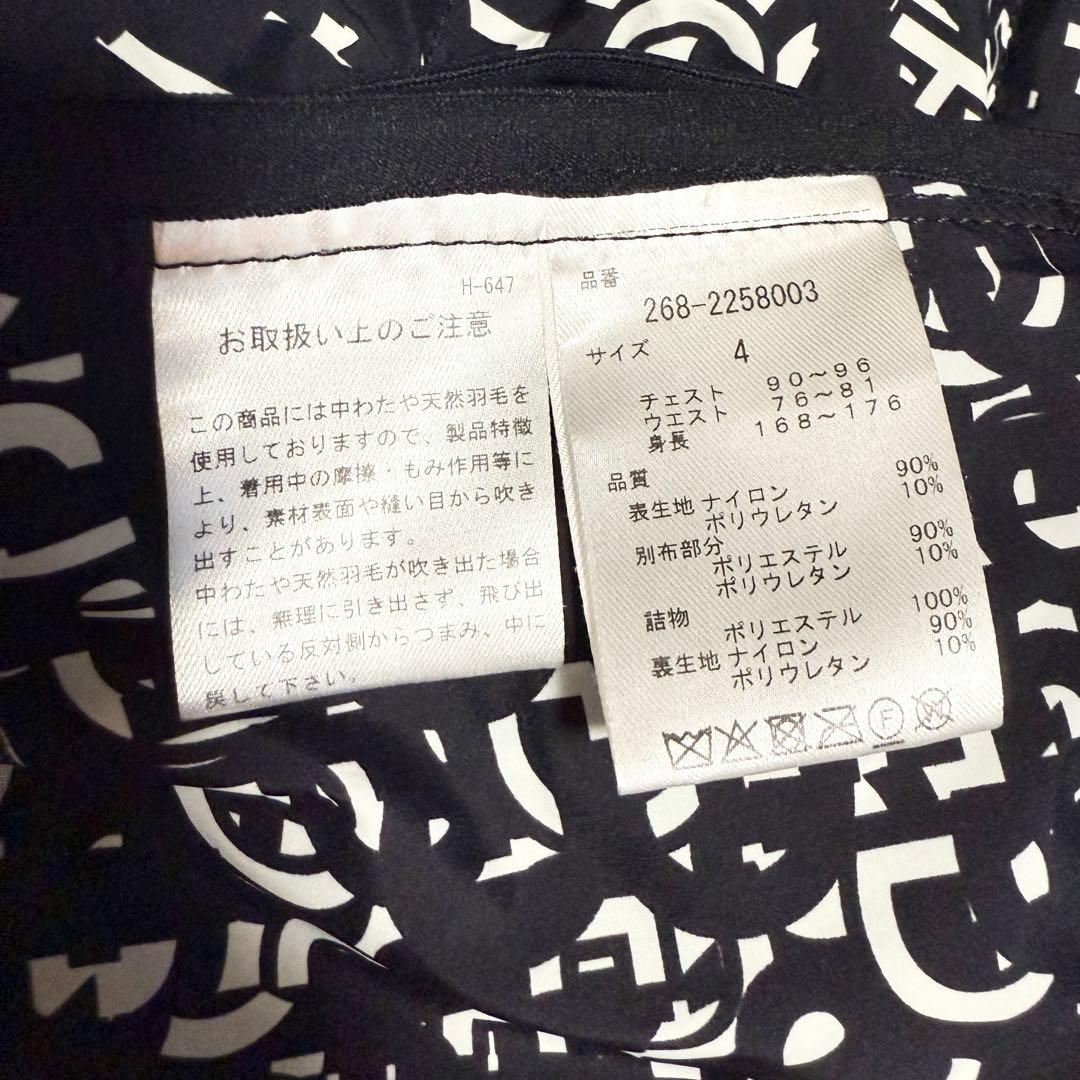 H-647
お取扱い上のご注意
この商品には中わたや天然羽毛を
使用しておりますので、製品特徴
上、着用中の摩擦・もみ作用等に
より、素材表面や縫い目から吹き
出すことがあります。
中わたや天然羽毛が吹き出た場合
には、無理に引き出さず、飛び出
している反対側からつまみ、中に
戻して下さい。
品番
268-2258003
サイズ 4
チェスト 90～96
ウエスト 76～81
身長 168～176
品質
表生地 ナイロン 90%
ポリウレタン 10%
別布部分 ポリエステル 90%
ポリウレタン 10%
詰物 ポリエステル 100%
裏生地 ナイロン 90%
ポリウレタン 10%
F